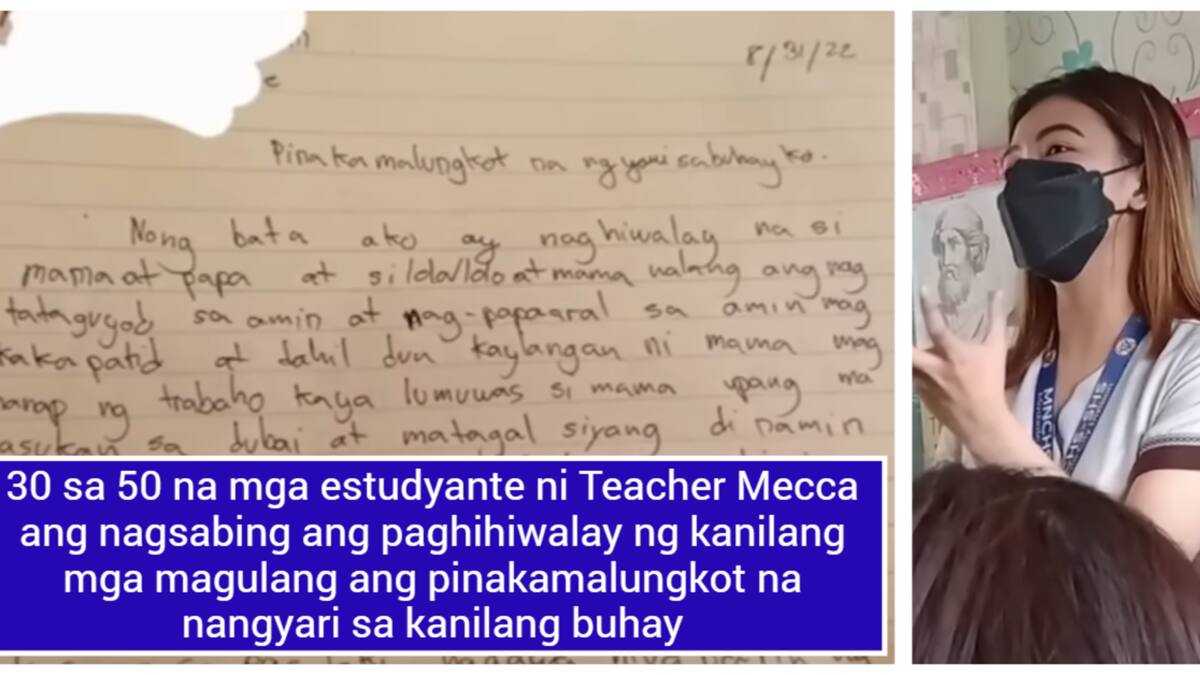 8/31/22
Pinakamalungkot na ngyari sa buhay ko.
Nong bata ako ay naghiwalay na si
mama at papa at si lola/lolo at mama nalang ang nag
tataguyod sa amin at nag-papaaral sa amin mag
kakapatid at dahil dun kaylangan ni mama mag
hanap ng trabaho kaya lumuwas si mama upang ma
asukan sa dubai at matagal siyang di namin
30 sa 50 na mga estudyante ni Teacher Mecca
ang nagsabing ang paghihiwalay ng kanilang
mga magulang ang pinakamalungkot na
nangyari sa kanilang buhay
SHS
MNCH